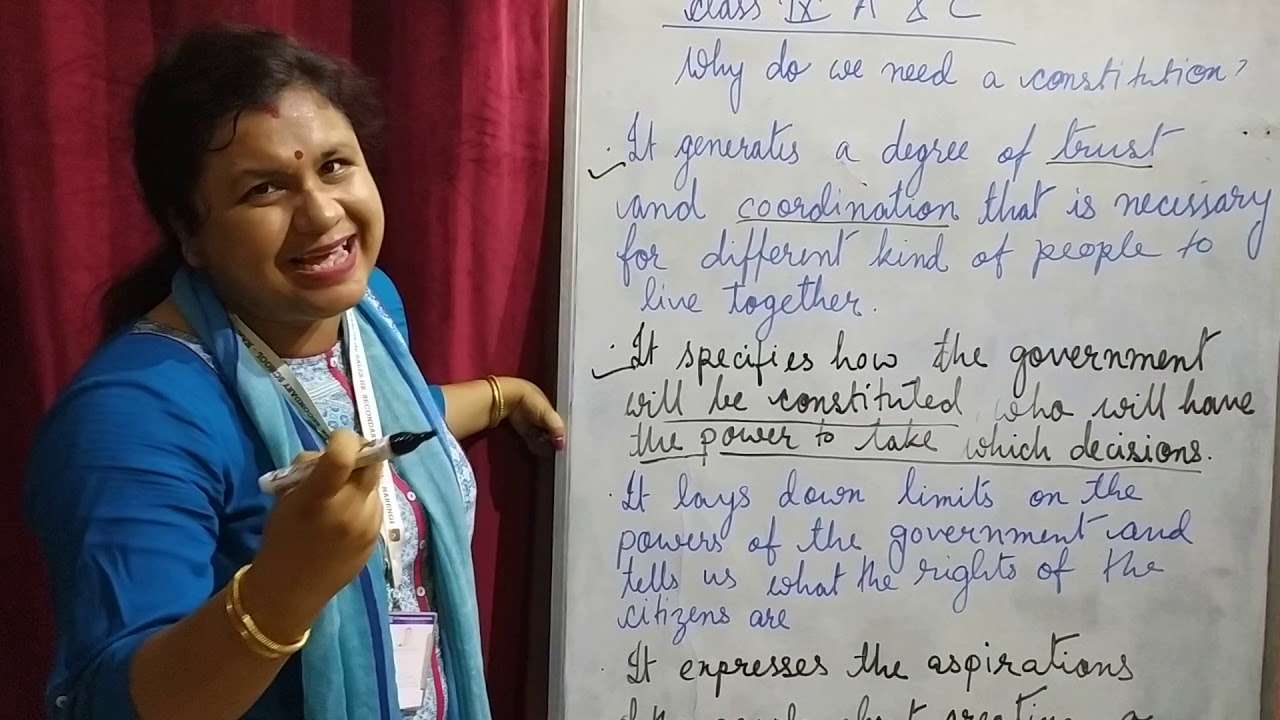 class IX A & C
Why do we need a constitution?
It generates a degree of trust
and coordination that is necessary
for different kind of people to
live together.
It specifies how the government
will be constituted who will have
the power to take which decisions.
It lays down limits on the
powers of the government and
tells us what the rights of the
citizens are
It expresses the aspirations
SECONDARY SCHOOL
SECONDARY
NARENGI